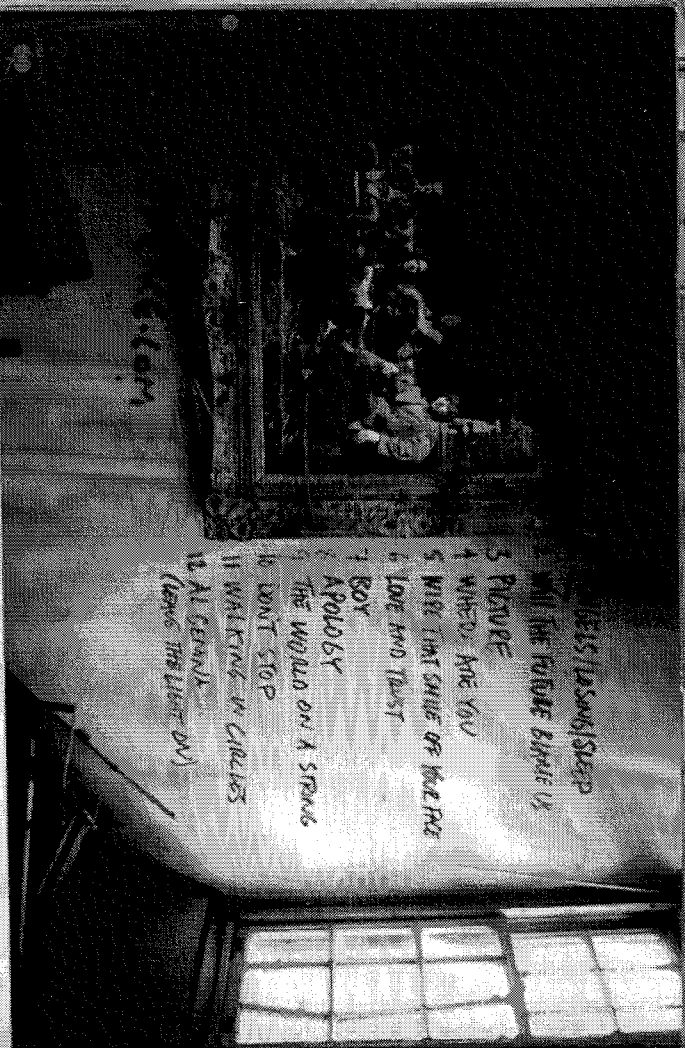 SLEEP
WILL THE FUTURE BLAME US
3 PICTURE
4 WHERE ARE YOU
5 WIPE THAT SMILE OF YOUR FACE
6 LOVE AND TRUST
7 BOY
8 APOLOGY
9 THE WORLD ON A STRING
10 DON'T STOP
11 WALKING IN CIRCLES
12
(LEAVE THE LIGHT ON)
.COM